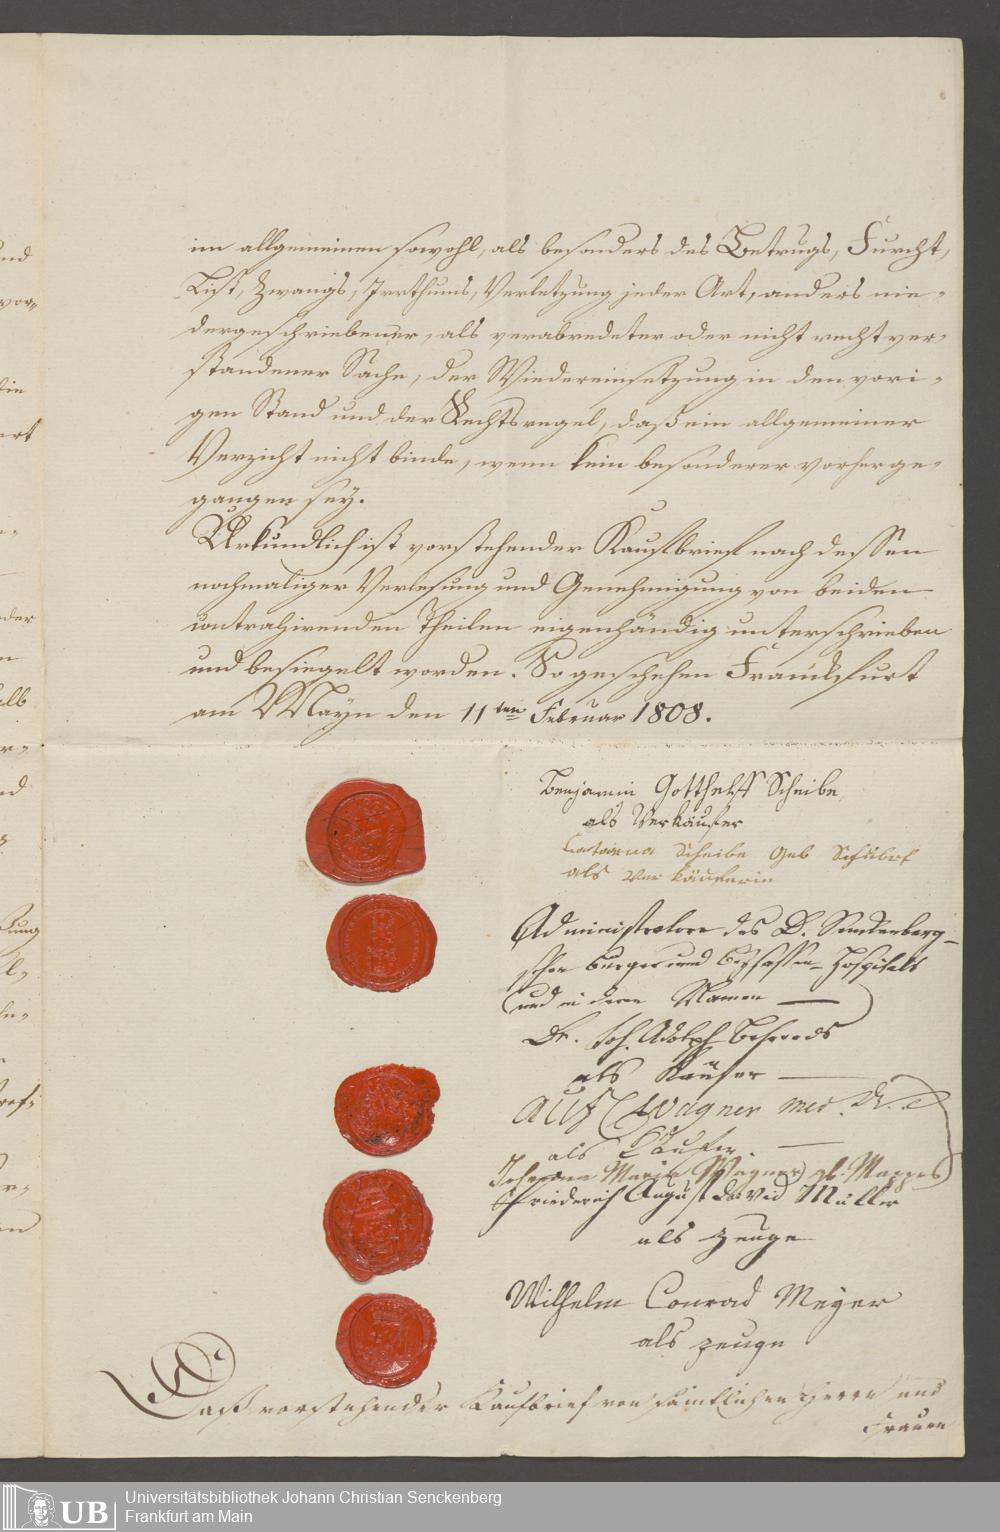 im allgemeinen sowohl, als besonders des Betrugs, Furcht,
List, Zwangs, Irrthums, Verletzung jeder Art, anders nie-
dergeschriebener, als verabredeter oder nicht recht ver-
standener Sache, der Wiedereinsetzung in den vori-
gen Stand und der Rechtsregel, daß ein allgemeiner
Verzicht nicht binde, wenn kein besonderer vorherge-
gangen sey.
Urkundlich ist vorstehender Kaufbrief nach dessen
nochmaliger Verlesung und Genehmigung von beiden
contrahirenden Theilen eigenhändig unterschrieben
und besiegelt worden. So geschehen Franckfurt
am Mayn den 11ten Februar 1808.
Benjamin Gotthelff Scheibe
als Verkäufer
Catarina Scheibe Geb
als Verkäuferin
Administratore des D. Senckenberg-
schen Burger und Beysassen-Hospitals
und in deren Namen
Dr. Joh. Adolph Behrends
als Käufer
Wagner med. Dr.
als Käufer.
Maria Wagner gb. Mappes
Friederich August David Müller
als Zeuge
Wilhelm Conrad Meyer
als Zeuge
Daß vorstehender Kaufbrief von sämtlichen Herrn und
Frauen
und
vor-
ert
oder
n
alb
nd
UB
Universitätsbibliothek Johann Christian Senckenberg
Frankfurt am Main